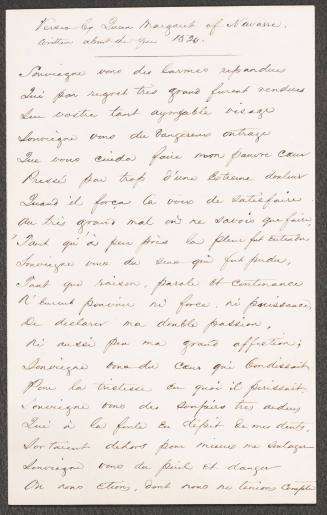 Verses by Queen Margaret of Navarre.
written about the year 1520.
Souviegne vous des larmes repandues
Qui par regret très grand furent rendues
Sur vostre tant aymable visage
Souviegne vous du dangereux outrage
Que vous cuida faire mon pauvre cœur
Pressé par trop d'une extreme douleur
Quand il força la voix de satisfaire
Au très grand mal où ne savois que faire,
Tant qu'à peu près la pleur fut entendu
Souviegne vous du sens qui fut perdu,
Tant que raison, parole et contenance
N'eurent pouvoir ni force, ni puissance,
De declarer ma double passion,
Ni aussi peu ma grand affection;
Souviegne vous du cœur qui bondissait
Pour la tristesse en quoi il périssait,
Souviegne vous des soupirs très ardens
Qui à la foule en dépit de mes dents,
Sortaient dehors pour mieux me soulager
Souviegne vous du péril et danger
Où nous etions, dont nous ne tenions compte